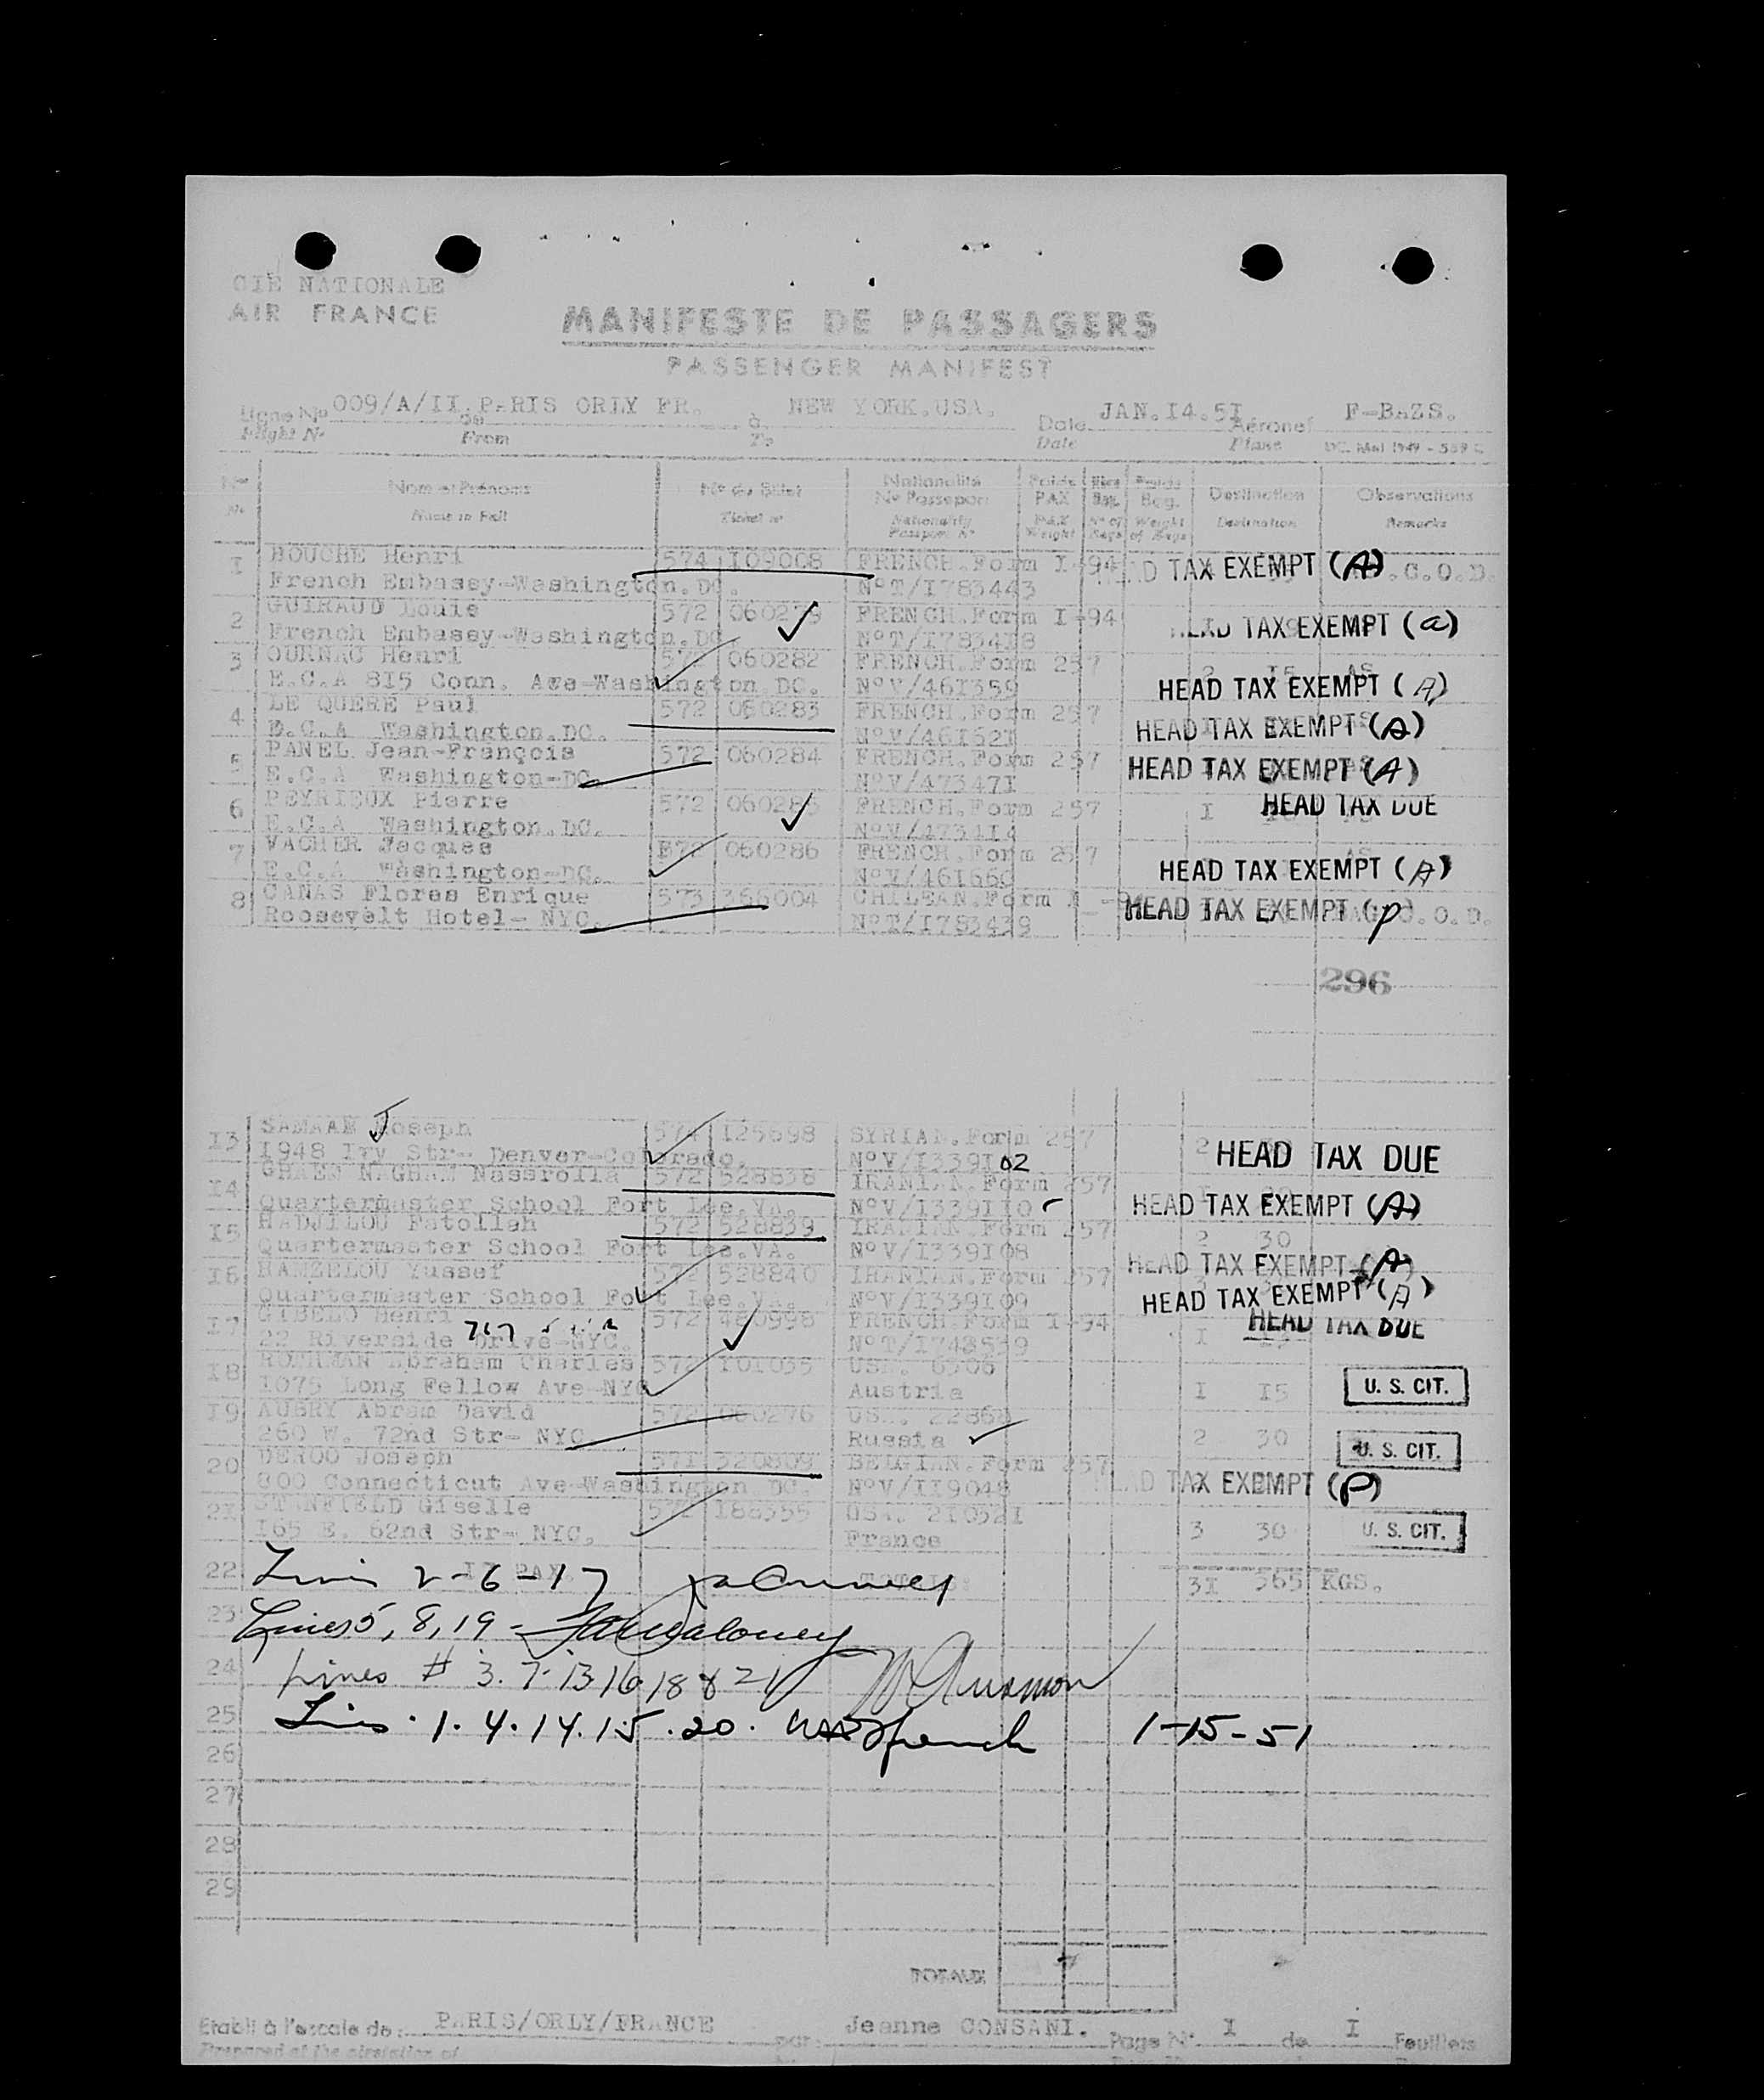 CIE NATIONALE
AIR FRANCE
MANIFESTE DE PASSAGERS
PASSENGER MANIFEST
Ligne No 009/A/II de PARIS ORLY FR. à NEW YORK.USA. Date JAN.I4.5I Aéronef F-BAZS.
Flight No From To Date Plane
Nom et Prénoms No du Billet Nationalité No Passeport Poids PAX Poids Bag. Destination Observations
Name in Full Ticket No Nationality Passport No PAX Weight No of Bags Weight of Bags Destination Remarks
I BOUCHE Henri 574 I09008 FRENCH.Form I-94 TAX EXEMPT (A) .C.O.D.
French Embassy-Washington.DC. NoT/I783443
2 GUIRAUD Louis 572 060279 FRENCH.Form I-94 HEAD TAX EXEMPT (a)
French Embassy-Washington.DC NoT/I7834I8
3 OURNAC Henri 572 060282 FRENCH.Form 257 2 I5 AS
E.C.A 8I5 Conn. Ave-Washington.DC. NoV/46I359 HEAD TAX EXEMPT (A)
4 LE QUERE Paul 572 060283 FRENCH.Form 257
E.C.A Washington.DC. NoV/46I52I HEAD TAX EXEMPT (A)
5 PANEL Jean-François 572 060284 FRENCH.Form 257
E.C.A Washington-DC. NoV/47347I HEAD TAX EXEMPT (A)
6 PEYRIEUX Pierre 572 060285 FRENCH.Form 257 I HEAD TAX DUE
E.C.A Washington.DC. NoV/4734I4
7 VACHER Jacques 572 060286 FRENCH.Form 257 AS
E.C.A Washington-DC. NoV/46I660 HEAD TAX EXEMPT (A)
8 CANAS Flores Enrique 573 366004 CHILEAN.Form I-94 HEAD TAX EXEMPT (p) C.O.D.
Roosevelt Hotel- NYC. NoT/I783439
296
I3 SAMAAN Joseph 574 I25698 SYRIAN.Form 257 2 HEAD TAX DUE
I948 Ivy Str- Denver-Colorado. NoV/I339I02
I4 Nassrolla 572 528838 IRANIAN.Form 257
Quartermaster School Fort Lee.VA. NoV/I339II0 HEAD TAX EXEMPT (A)
I5 HADJILOU Fatollah 572 528839 IRANIAN.Form 257 2 30
Quartermaster School Fort Lee.VA. NoV/I339I08 HEAD TAX EXEMPT (A)
I6 RAMZELOU Yussef 572 528840 IRANIAN.Form 257
Quartermaster School Fort Lee.VA. NoV/I339I09 HEAD TAX EXEMPT (A)
I7 GIBELO Henri 572 480998 FRENCH.Form I-94 HEAD TAX DUE
22 Riverside Drive-NYC. NoT/I748539 I
I8 ROTHMAN Abraham Charles 572 I0I035 USA. 6506
I075 Long Fellow Ave-NYC Austria I I5 U. S. CIT.
I9 AUBRY Abram David 572 060276 USA. 22868
260 W. 72nd Str- NYC Russia 2 30 U. S. CIT.
20 DEROO Joseph 57I 320809 BELGIAN.Form 257
800 Connecticut Ave-Washington DC. NoV/II9048 HEAD TAX EXEMPT (P)
2I STANFIELD Giselle 572 I88355 USA. 2I032I
I65 E. 62nd Str- NYC. France 3 30 U. S. CIT.
22 Lines 2-6-17 I7 PAX. TOTALS: 3I 365 KGS.
23 Lines 5, 8, 19 - Maloney
24 Lines # 3.7-13 16 18 & 21
25 Lines . 1. 4. 14. 15 . 20. French 1-15-51
26
27
28
29
TOTAUX
Etabli à l'escale de: PARIS/ORLY/FRANCE par: Jeanne CONSANI. Page No I de I Feuillets
Prepared at the airstation of